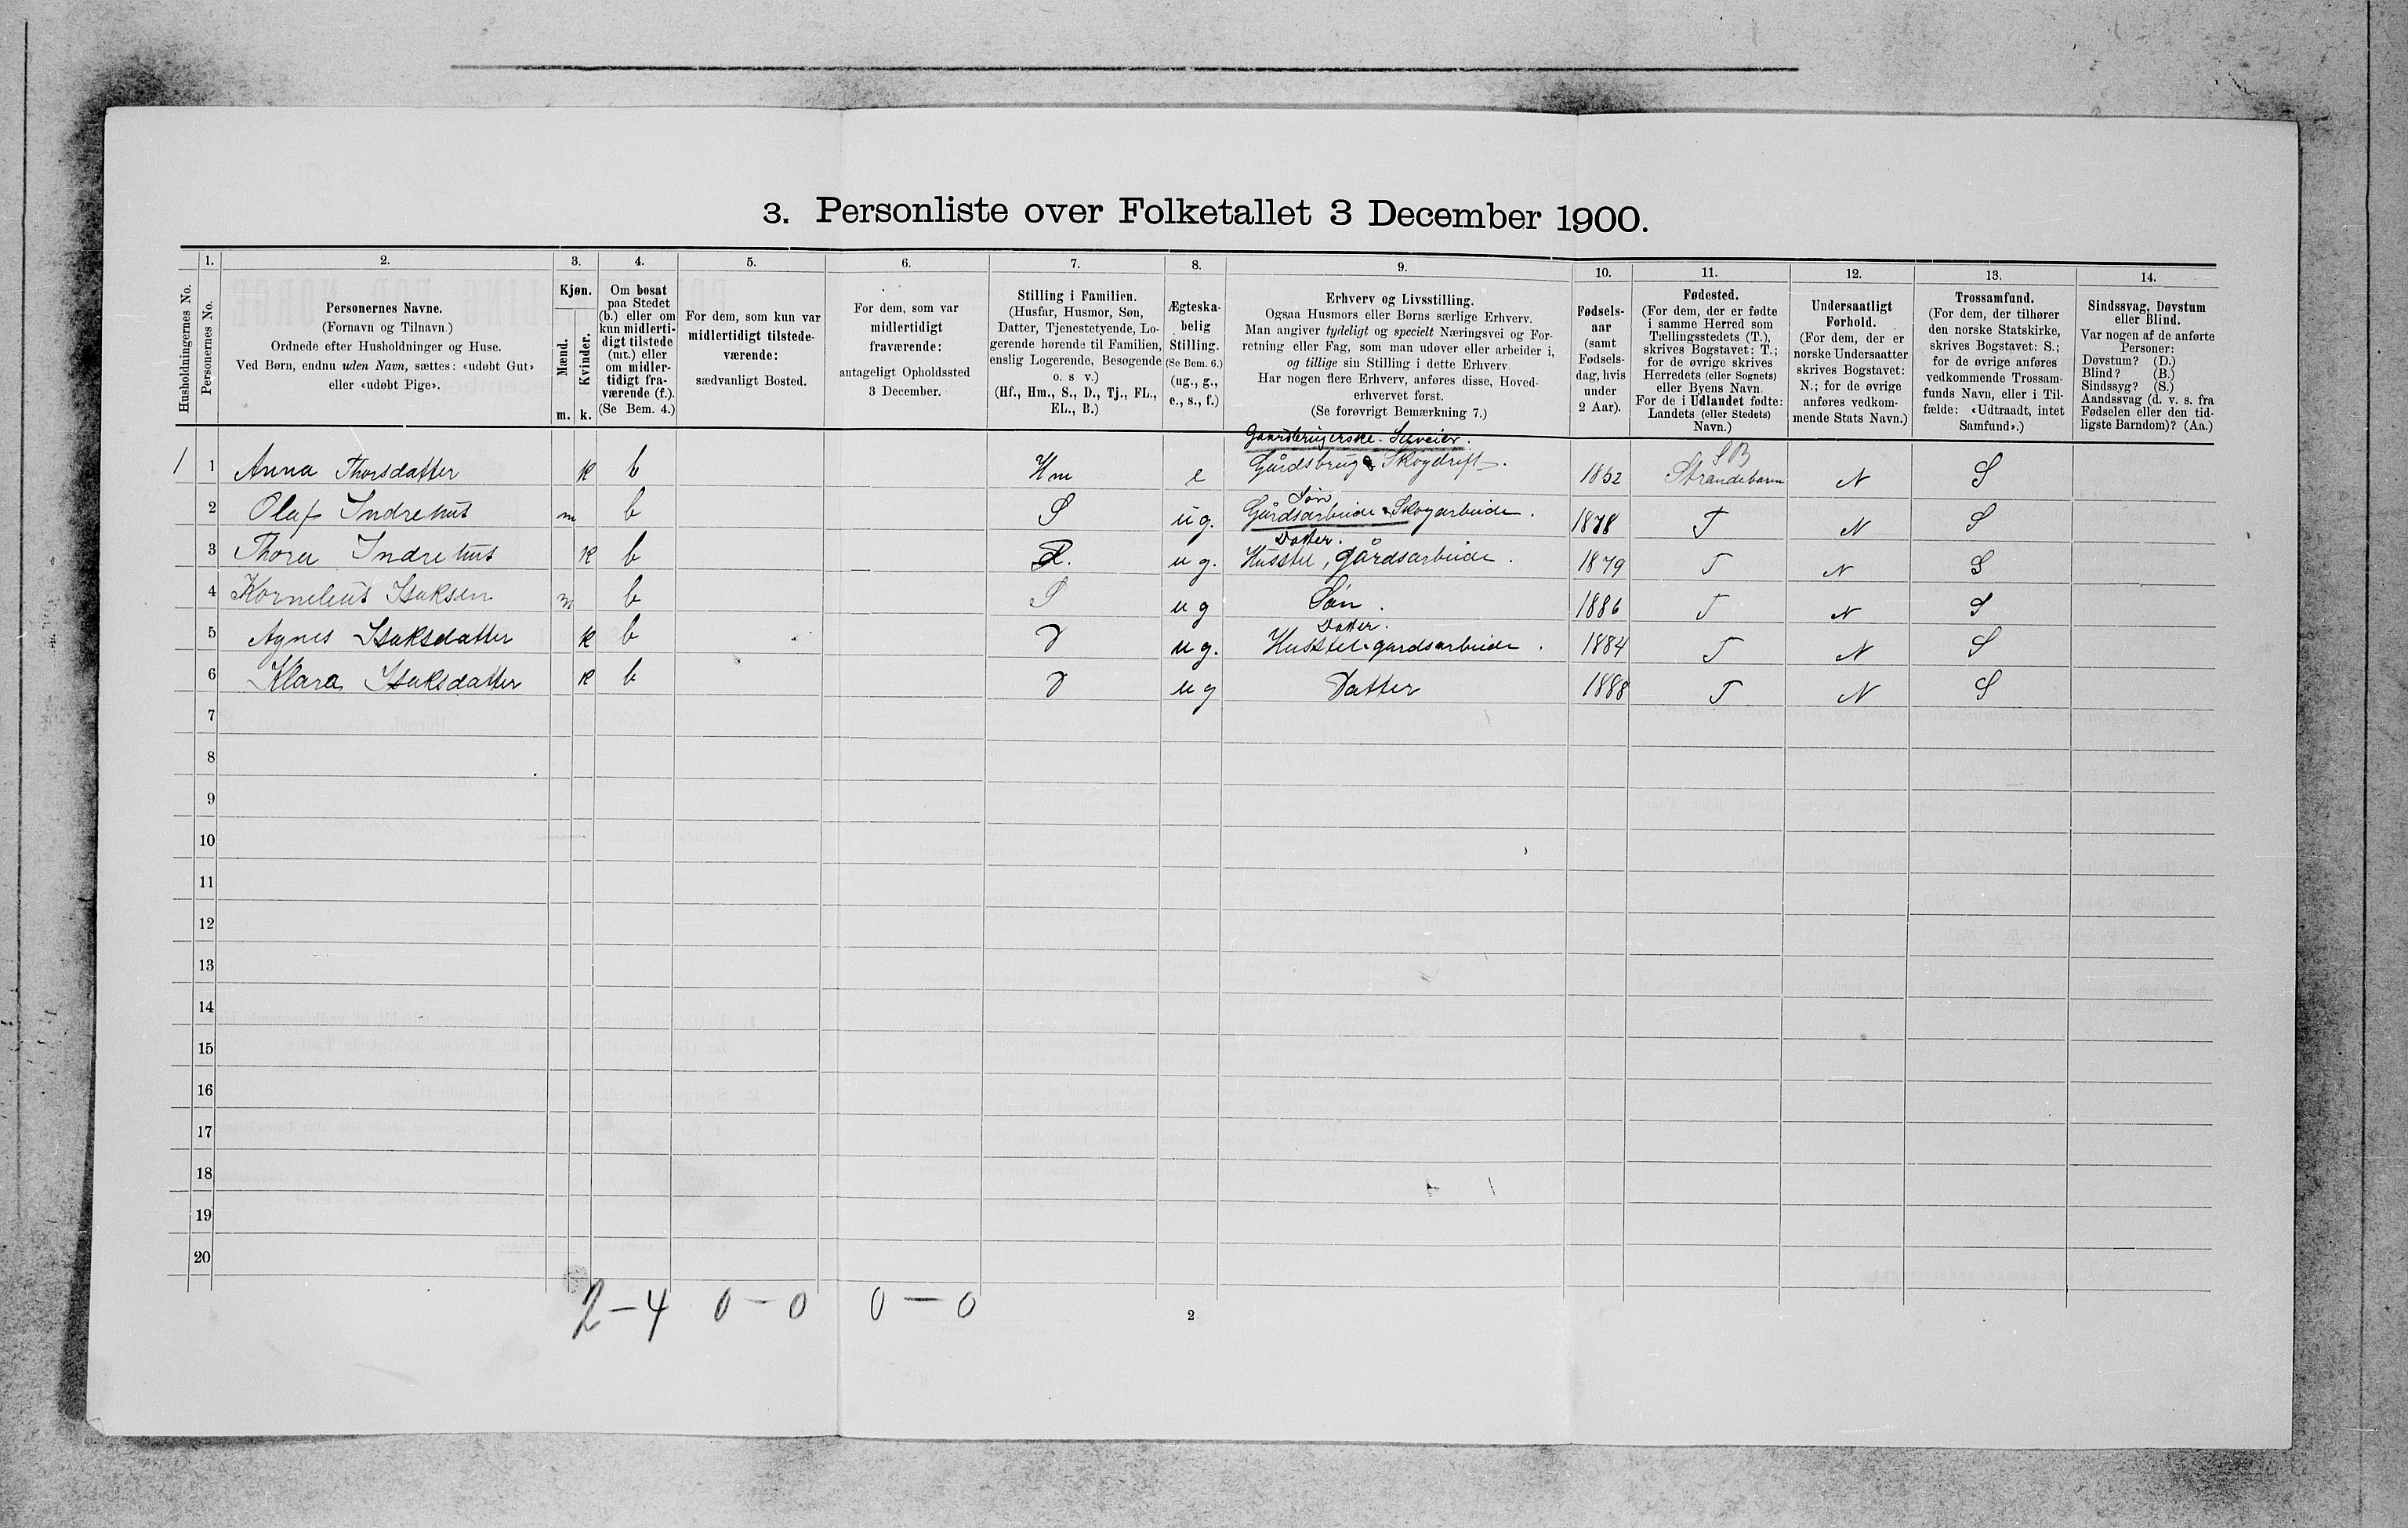 3. Personliste over Folketallet 3 December 1900.
1. 2. 3. 4. 5. 6. 7. 8. 9. 10. 11. 12. 13. 14.
Husholdningernes No.
Personernes No.
Personernes Navne.
(Fornavn og Tilnavn.)
Ordnede efter Husholdninger og Huse.
Ved Børn, endnu uden Navn, sættes: «udøbt Gut»
eller «udøbt Pige».
Kjøn.
Mænd.
Kvinder.
m. k.
Om bosat
paa Stedet
(b.) eller om
kun midlerti-
digt tilstede
(mt.) eller
om midler-
tidigt fra-
værende (f.).
(Se Bem. 4.)
For dem, som kun var
midlertidigt tilstede-
værende:
sædvanligt Bosted.
For dem, som var
midlertidigt
fraværende:
antageligt Opholdssted
3 December.
Stilling i Familien.
(Husfar, Husmor, Søn,
Datter, Tjenestetyende, Lo-
gerende hørende til Familien,
enslig Logerende, Besøgende
o. s v.)
(Hf., Hm., S., D., Tj., FL.,
EL., B.)
Ægteska-
belig
Stilling.
(Se Bem. 6.)
(ug., g.,
e., s., f.)
Erhverv og Livsstilling.
Ogsaa Husmors eller Børns særlige Erhverv.
Man angiver tydeligt og specielt Næringsvei og For-
retning eller Fag, som man udøver eller arbeider i,
og tillige sin Stilling i dette Erhverv.
Har nogen flere Erhverv, anføres disse, Hoved-
erhvervet først.
(Se forøvrigt Bemærkning 7.)
Fødsels-
aar
(samt
Fødsels-
dag, hvis
under
2 Aar).
Fødested.
(For dem, der er fødte
i samme Herred som
Tællingsstedets (T.),
skrives Bogstavet: T.;
for de øvrige skrives
Herredets (eller Sognets)
eller Byens Navn.
For de i Udlandet fødte:
Landets (eller Stedets)
Navn.)
Undersaatligt
Forhold.
(For dem, der er
norske Undersaatter
skrives Bogstavet:
N.; for de øvrige
anføres vedkom-
mende Stats Navn.)
Trossamfund.
(For dem, der tilhører
den norske Statskirke,
skrives Bogstavet: S.;
for de øvrige anføres
vedkommende Trossam-
funds Navn, eller i Til-
fælde: «Udtraadt, intet
Samfund».)
Sindssvag, Døvstum
eller Blind.
Var nogen af de anførte
Personer:
Døvstum? (D.)
Blind? (B.)
Sindssyg? (S.)
Aandssvag (d. v. s. fra
Fødselen eller den tid-
ligste Barndom)? (Aa.)
Gaardbrugerske. Selveier.
S B
1 1 Anna Thorsdatter k b Hm e Gårdsbrug & Skogdrift. 1852 Strandebarm N S
Søn
2 Olaf Indrehus m b S ug. Gårdsarbeide & Skogarbeide. 1878 T N S
Datter.
3 Thora Indrehus k b D. ug. Husstel, gårdsarbeide. 1879 T N S
4 Kornelius Isaksen m b S ug Søn. 1886 T N S
Datter.
5 Agnes Isaksdatter k b D ug. Husstel & gardsarbeide. 1884 T N S
6 Klara Isaksdatter k b D ug Datter 1888 T N S
7
8
9
10
11
12
13
14
15
16
17
18
19
20
2 – 4 0 – 0 0 – 0
2